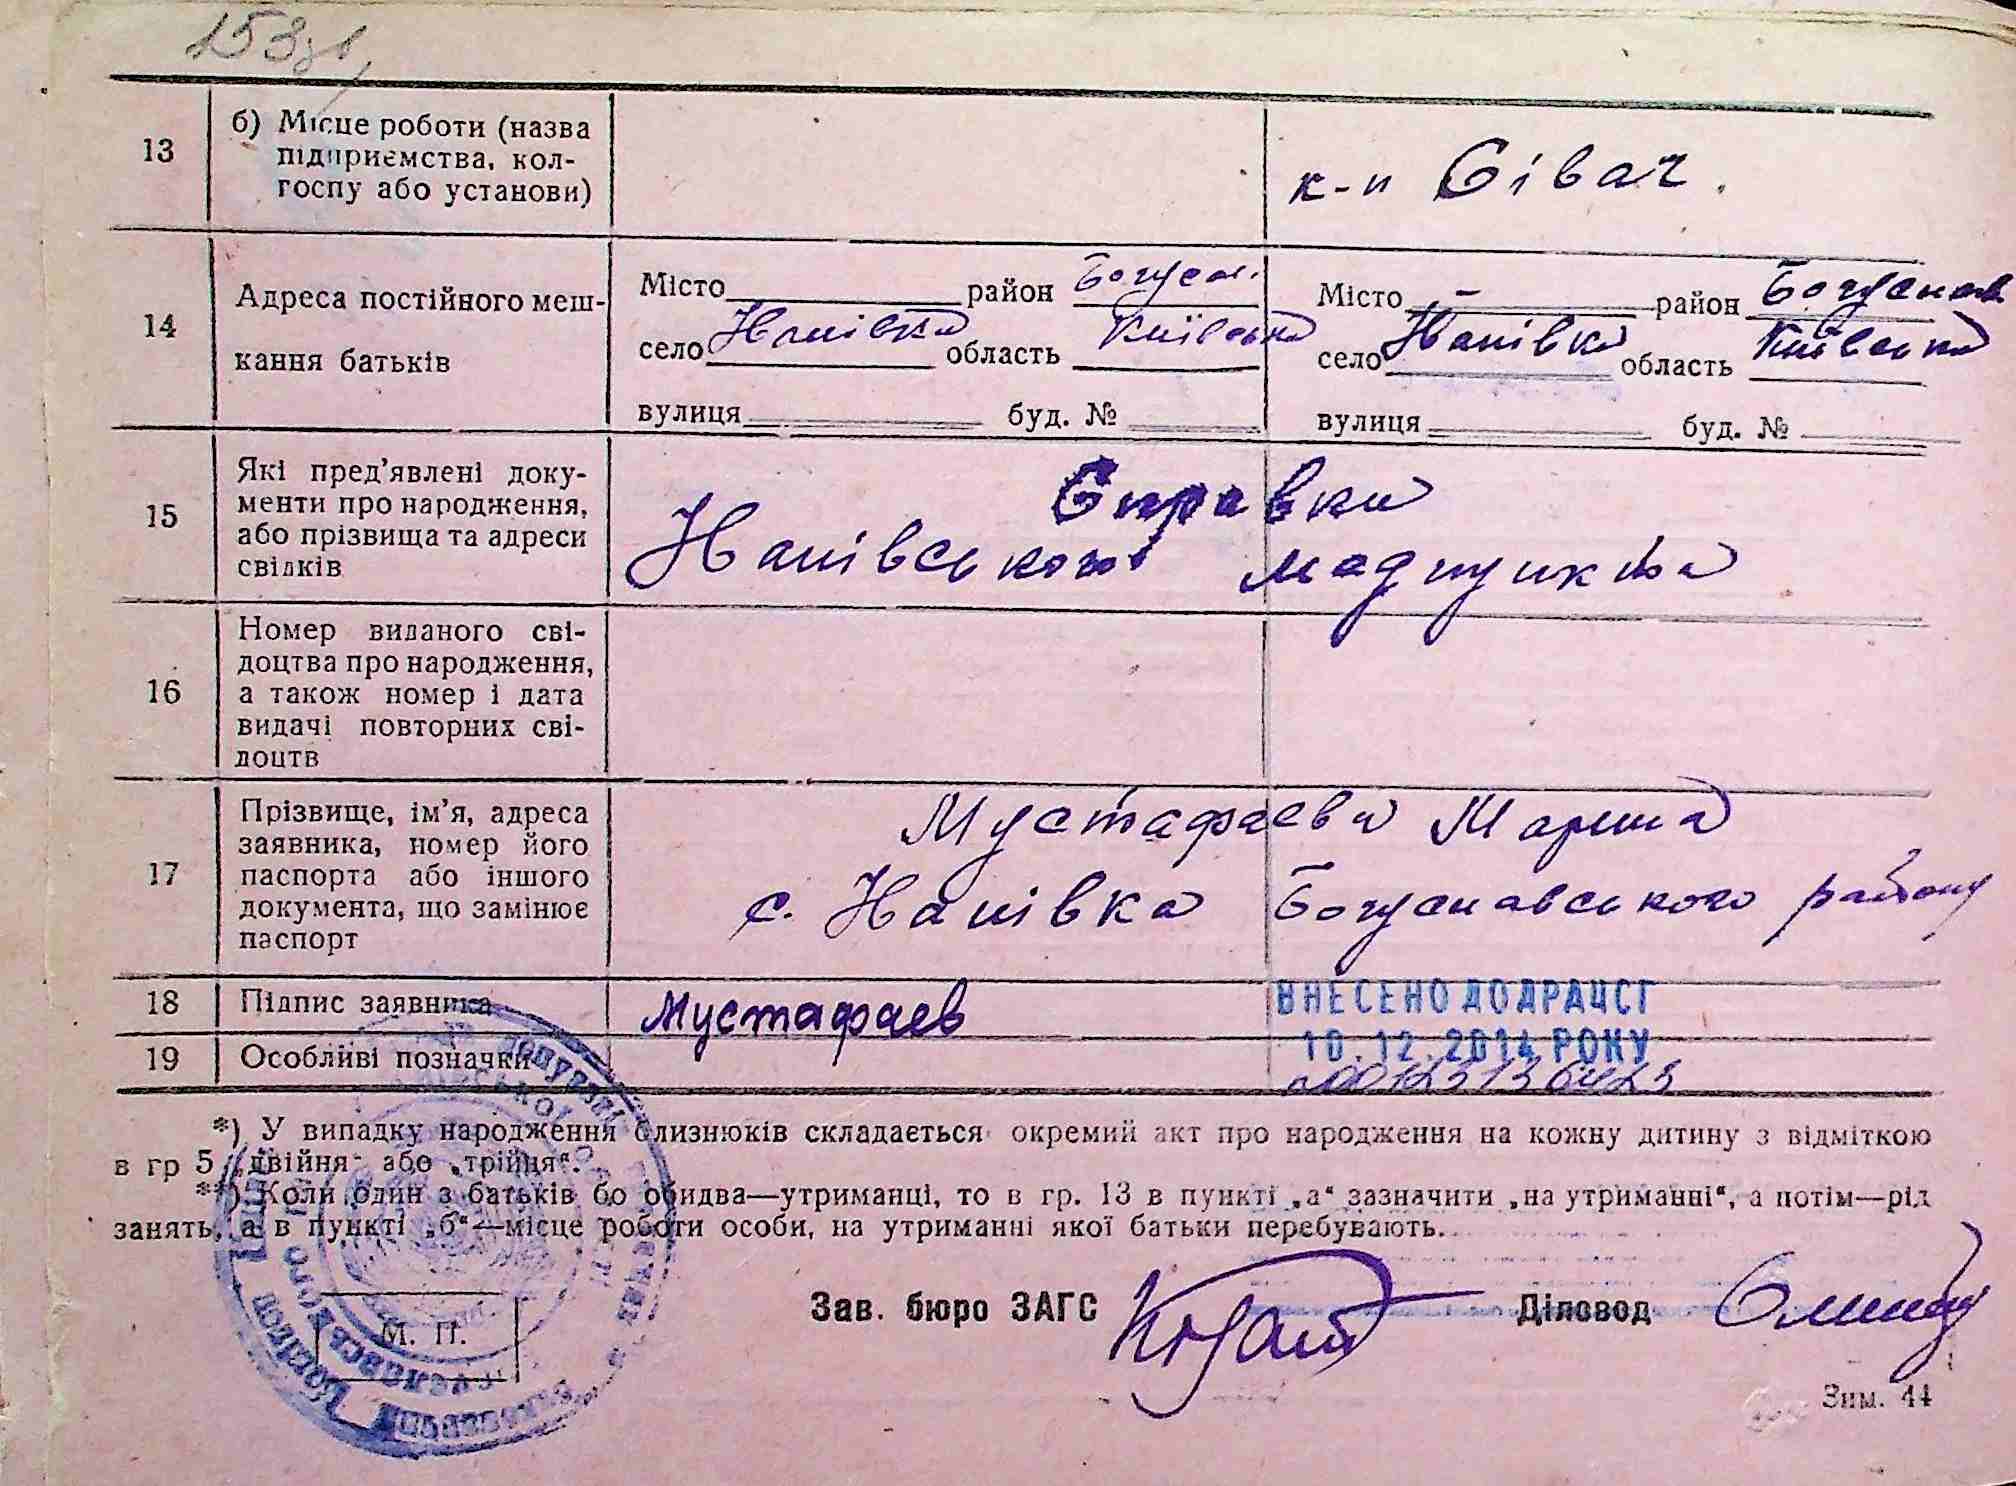 153
13
б) Місце роботи (назва
підприємства, кол-
госпу або установи)
к-п Сівач.
14
Адреса постійного меш-
кання батьків
Місто район Богусл.
село Іванівка область Київська
вулиця буд. №
Місто — район Богуслав
село Іванівка область Київська
вулиця буд. №
15
Які пред'явлені доку-
менти про народження,
або прізвища та адреси
свідків
Справка
Іванівського медпункта
16
Номер виданого сві-
доцтва про народження,
а також номер і дата
видачі повторних сві-
доцтв
17
Прізвище, ім'я, адреса
заявника, номер його
паспорта або іншого
документа, що замінює
паспорт
Мустафаєва Марина
с. Іванівка Богуславського району
18
Підпис заявника
Мустафаев
ВНЕСЕНО ДО ДРАЦСГ
10.12.2014 РОКУ
19
Особливі позначки
*) У випадку народження близнюків складається окремий акт про народження на кожну дитину з відміткою
в гр 5 „двійня" або „трійня".
**) Коли один з батьків бо обидва—утриманці, то в гр. 13 в пункті „а" зазначити „на утриманні", а потім—рід
занять, а в пункті „б"—місце роботи особи, на утриманні якої батьки перебувають.
М. П.
Зав. бюро ЗАГС
Діловод
Зим. 44